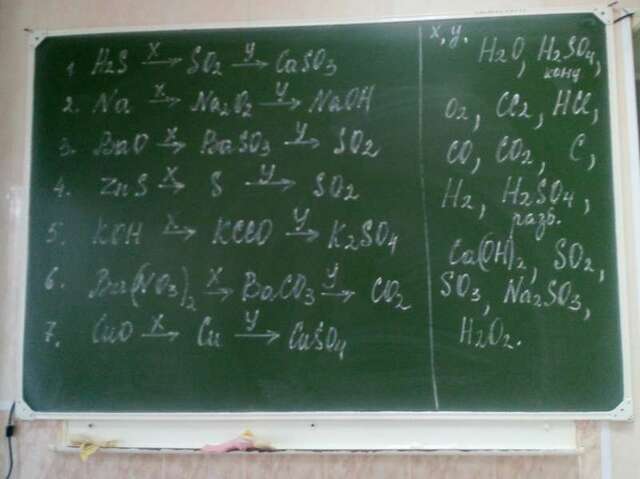 1. H₂S x→ SO₂ y→ CaSO₃
2. Na x→ Na₂O₂ y→ NaOH
3. BaO x→ BaSO₃ y→ SO₂
4. ZnS x→ S y→ SO₂
5. KOH x→ KClO y→ K₂SO₄
6. Ba(NO₃)₂ x→ BaCO₃ y→ CO₂
7. CuO x→ Cu y→ CuSO₄
x, y. H₂O, H₂SO₄,
конц
O₂, Cl₂, HCl,
CO, CO₂, C,
H₂, H₂SO₄,
разб.
Ca(OH)₂, SO₂,
SO₃, Na₂SO₃,
H₂O₂.